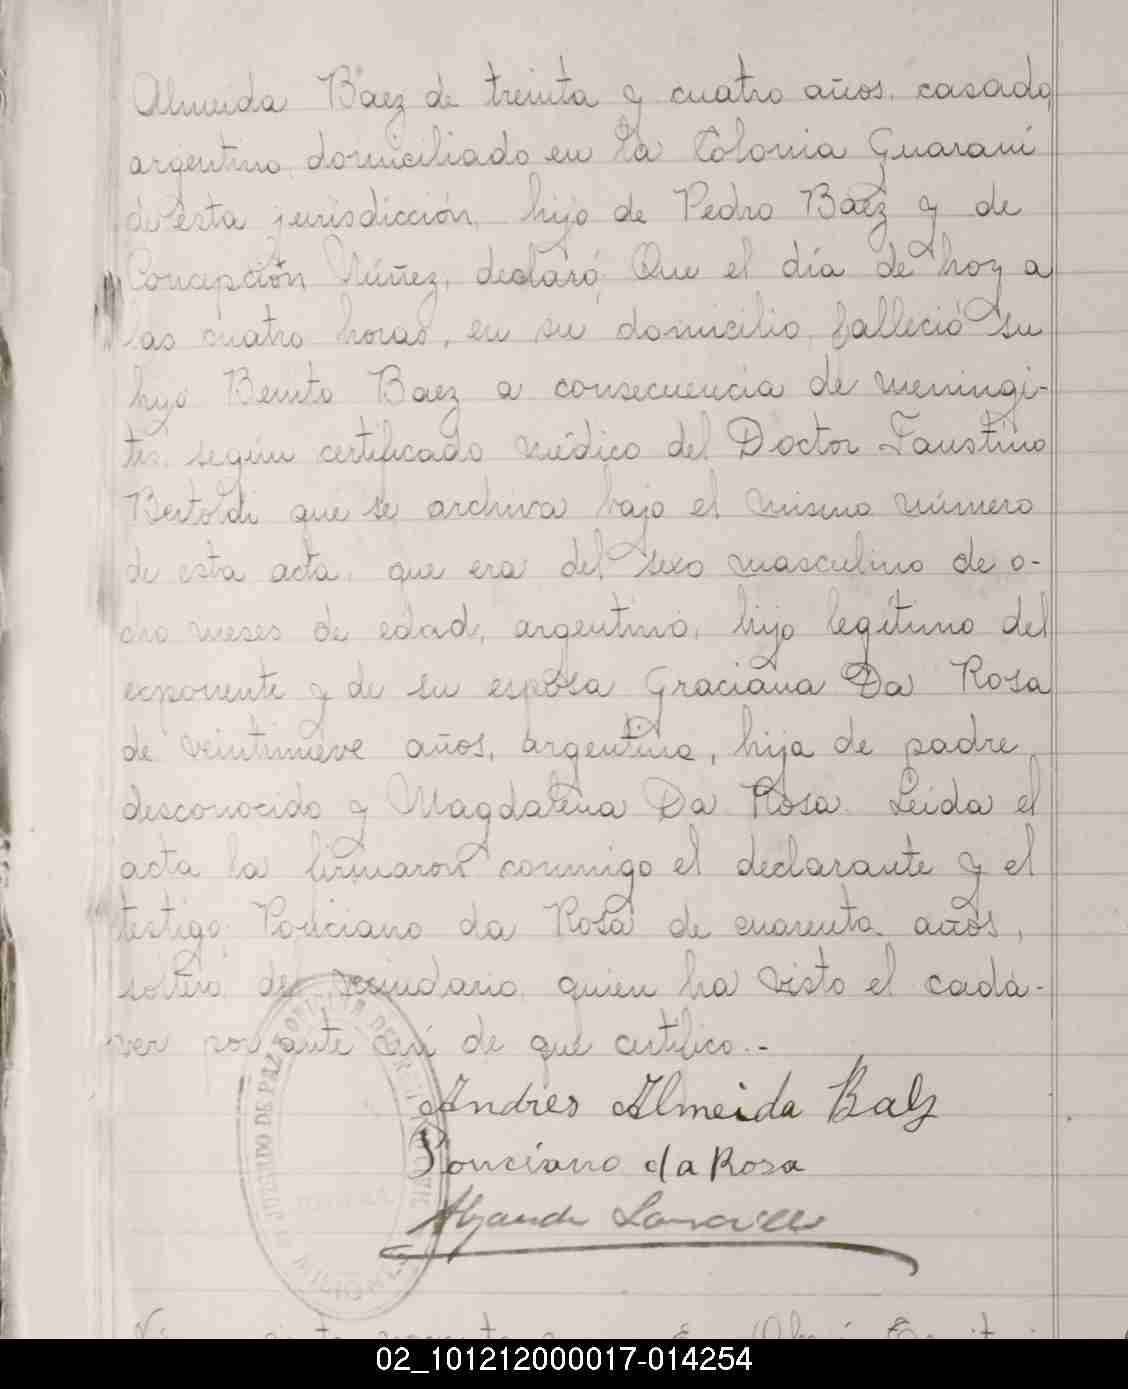 Almeida Baez de treinta y cuatro años, casado,
argentino, domiciliado en la Colonia Guaraní
de esta jurisdicción, hijo de Pedro Baez y de
Concepción Núñez, declaró: Que el día de hoy a
las cuatro horas, en su domicilio, falleció su
hijo Benito Baez a consecuencia de meningi-
tis según certificado médico del Doctor Faustino
Bertoldi que se archiva bajo el mismo número
de esta acta, que era del sexo masculino de o-
cho meses de edad, argentino, hijo legítimo del
exponente y de su esposa Graciana Da Rosa
de veintinueve años, argentina, hija de padre
desconocido y Magdalena Da Rosa. Leída el
acta la firmaron conmigo el declarante y el
testigo Ponciano da Rosa de cuarenta años,
soltero del vecindario, quien ha visto el cadá-
ver por ante mí de que certifico.-
Andres Almeida Baez
Ponciano da Rosa
JUZGADO DE PAZ
02_101212000017-014254